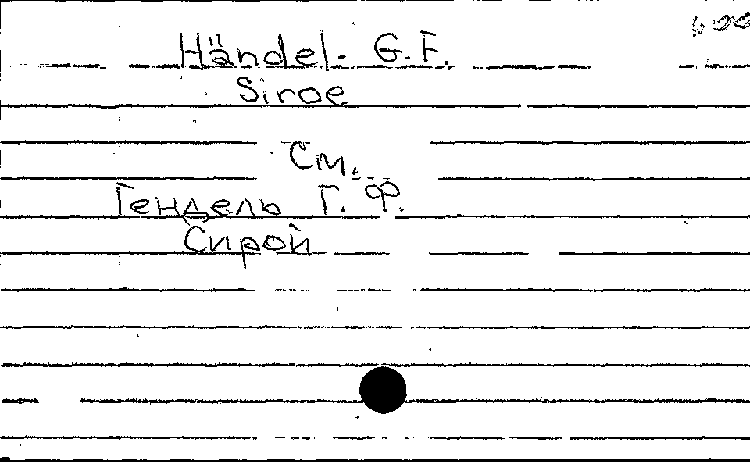 Händel. G.F.
Siroe
См.
Гендель Г. Ф.
Сирой